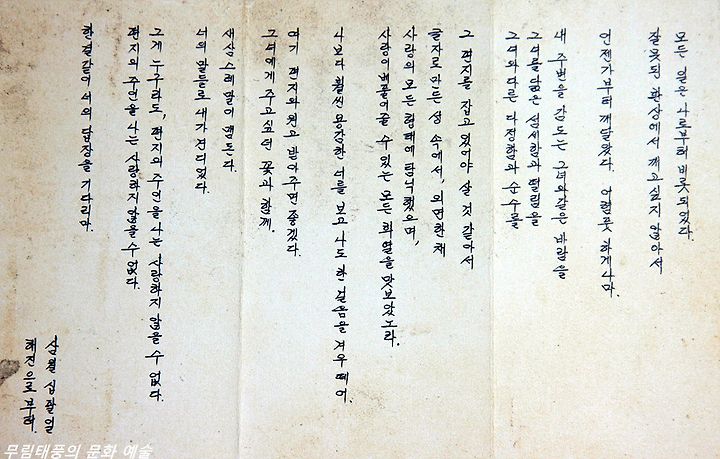 모든 일은 나로부터 비롯되었다.
잘못된 환상에서 깨고싶지 않아서
언젠가부터 깨달았다. 어렴풋 하게나마.
내 주변을 감도는 그녀와같은 바람을
그녀를 닮은 섬세함과 떨림을
그녀와 다른 다정함과 순수를
그 편지를 잡고 있어야 살 것 같아서
글자로 만든 성 속에서, 외면한 채
사랑의 모든 형태에 탐닉했으며,
사랑이 베풀어줄 수 있는 모든 희열을 맛보았노라.
나보다 훨씬 용감한 너를 보고 나도 한 걸음을 겨우 떼어.
여기 편지와 원고 받아주면 좋겠다.
그녀에게 주고싶던 꽃과 함께.
새삼스레 말이 맴돈다.
너의 말들로 내가 견디었다.
그게 누구라도, 편지의 주인을 나는 사랑하지 않을 수 없다.
편지의 주인을 나는 사랑하지않을 수 없다.
한결같이 너의 답장을 기다리마.
삼월 십팔일
해진으로부터.
무림태풍의 문화 예술